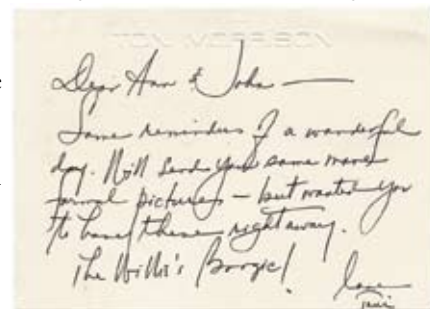 TONI MORRISON
Dear Ann & John —
Some reminders of a wonderful
day. Will send you some more
formal pictures — but wanted you
to have these right away.
The Willis's Boogie!
love
Toni